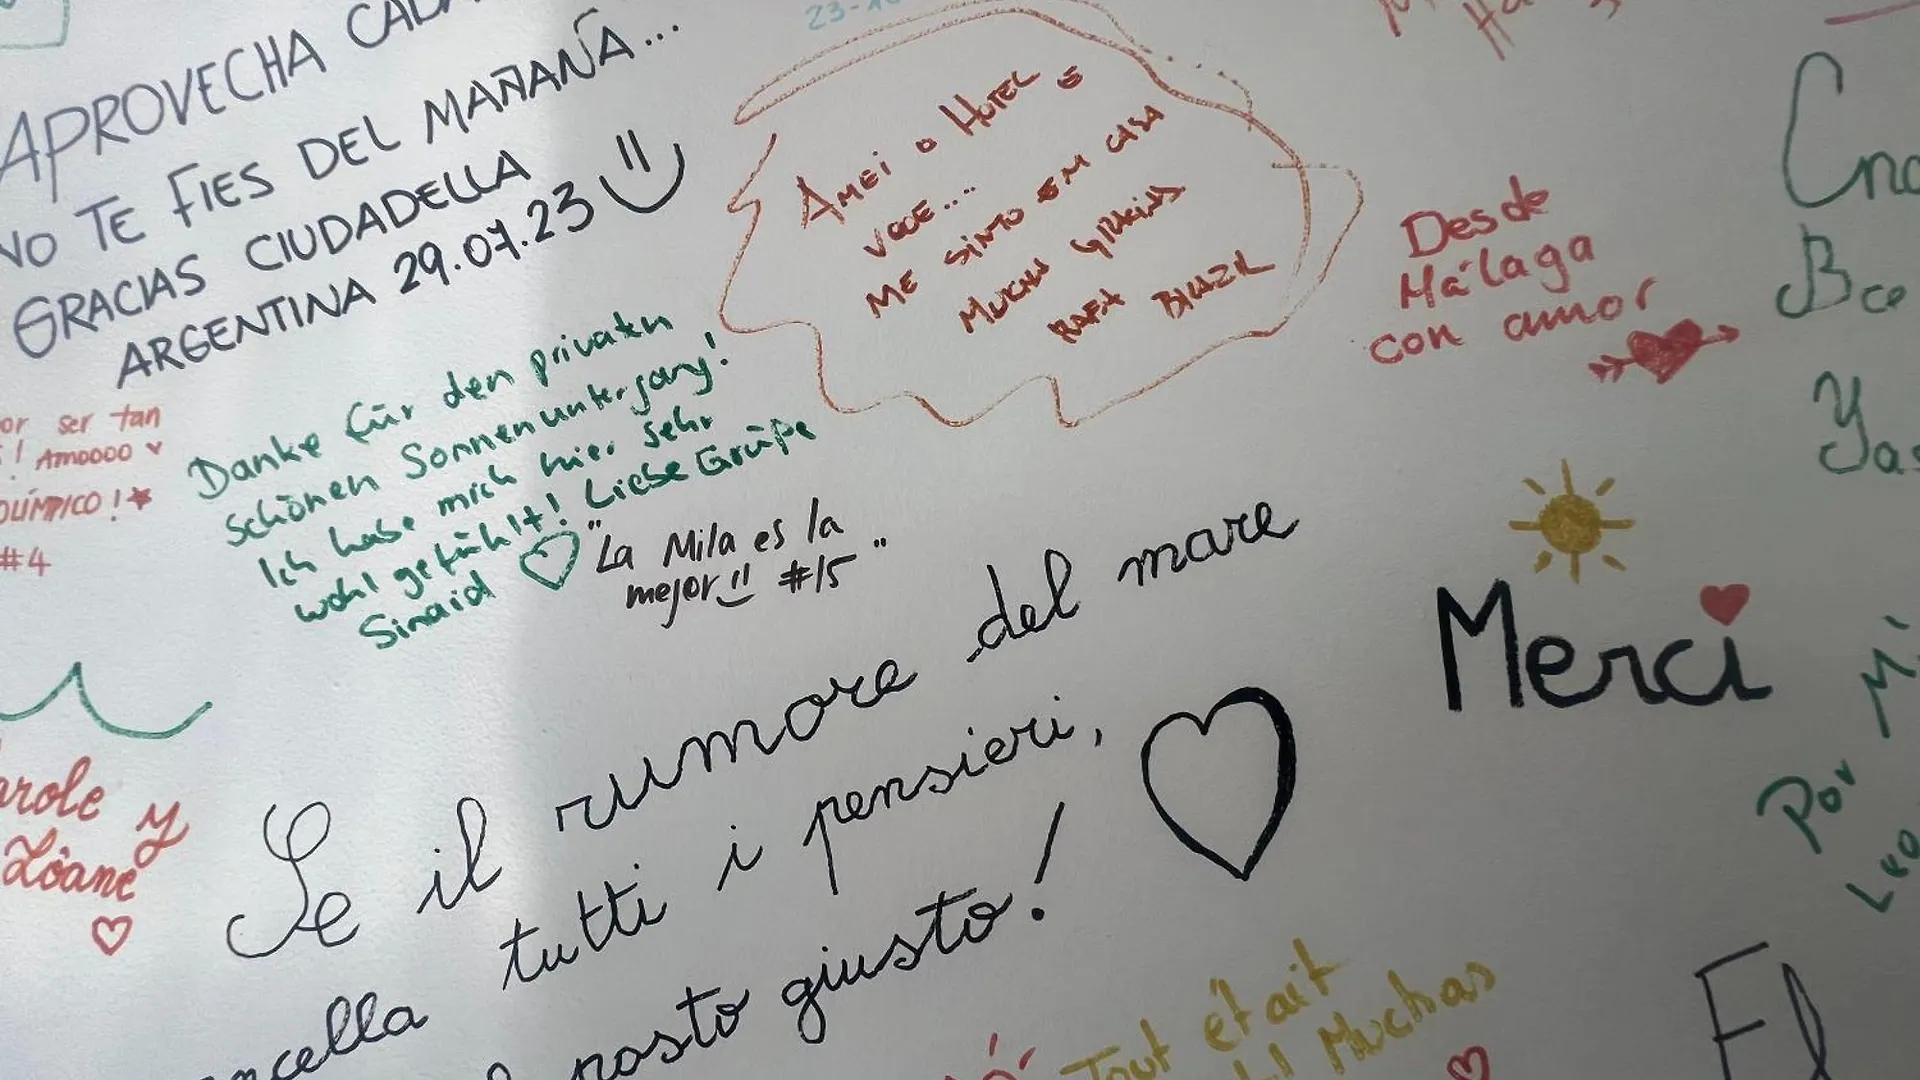 APROVECHA
NO TE FIES DEL MAÑANA...
GRACIAS CIUDADELLA
ARGENTINA 29.07.23
AMEI O HOTEL E
VOCE....
ME SINTO EM CASA
RAFA BRAZIL
Desde
Málaga
con amor
or ser tan
! AMOOOO
#4
Danke für den privaten
schönen Sonnenuntergang!
Ich habe mich hier sehr
wohl gefühlt! Liebe Grüße
Sinaid
"La Mila es la
mejor!! #15"
Merci
Se il rumore del mare
cella tutti i pensieri,
posto giusto!
y
Lôane
Por
Tout était
Muchas
El